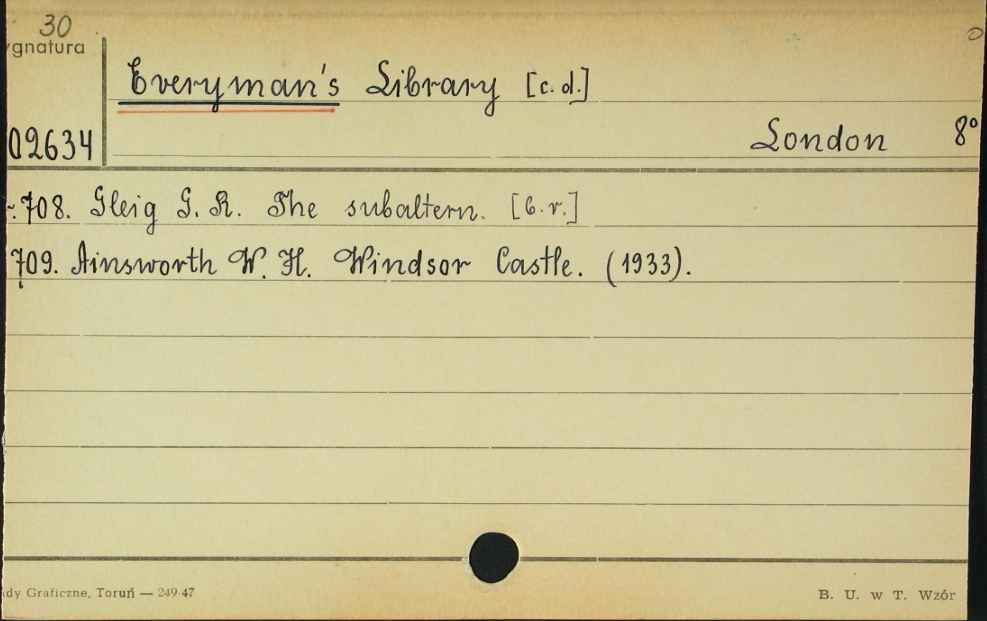 30
ygnatura
Everyman's Library [c.d.]
02634
London 8°
708. Gleig G. R. The subaltern. [b.r.]
709. Ainsworth W. H. Windsor Castle. (1933).
dy Graficzne, Toruń — 249-47
B. U. w T. Wzór